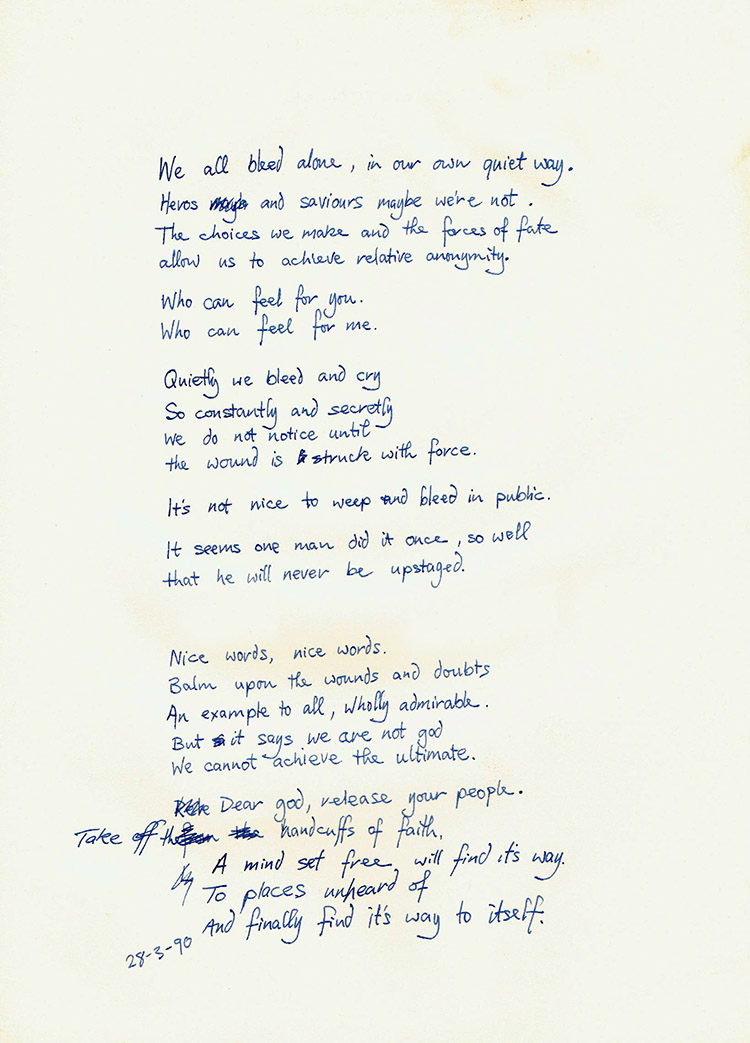 We all bleed alone, in our own quiet way.
Heros and saviours maybe we're not.
The choices we make and the forces of fate
allow us to achieve relative anonymity.
Who can feel for you.
Who can feel for me.
Quietly we bleed and cry
So constantly and secretly
We do not notice until
the wound is struck with force.
It's not nice to weep and bleed in public.
It seems one man did it once, so well
that he will never be upstaged.
Nice words, nice words.
Balm upon the wounds and doubts
An example to all, wholly admirable.
But it says we are not god
We cannot achieve the ultimate.
Dear god, release your people.
Take off the handcuffs of faith.
A mind set free will find it's way.
To places unheard of
And finally find it's way to itself.
28-3-90